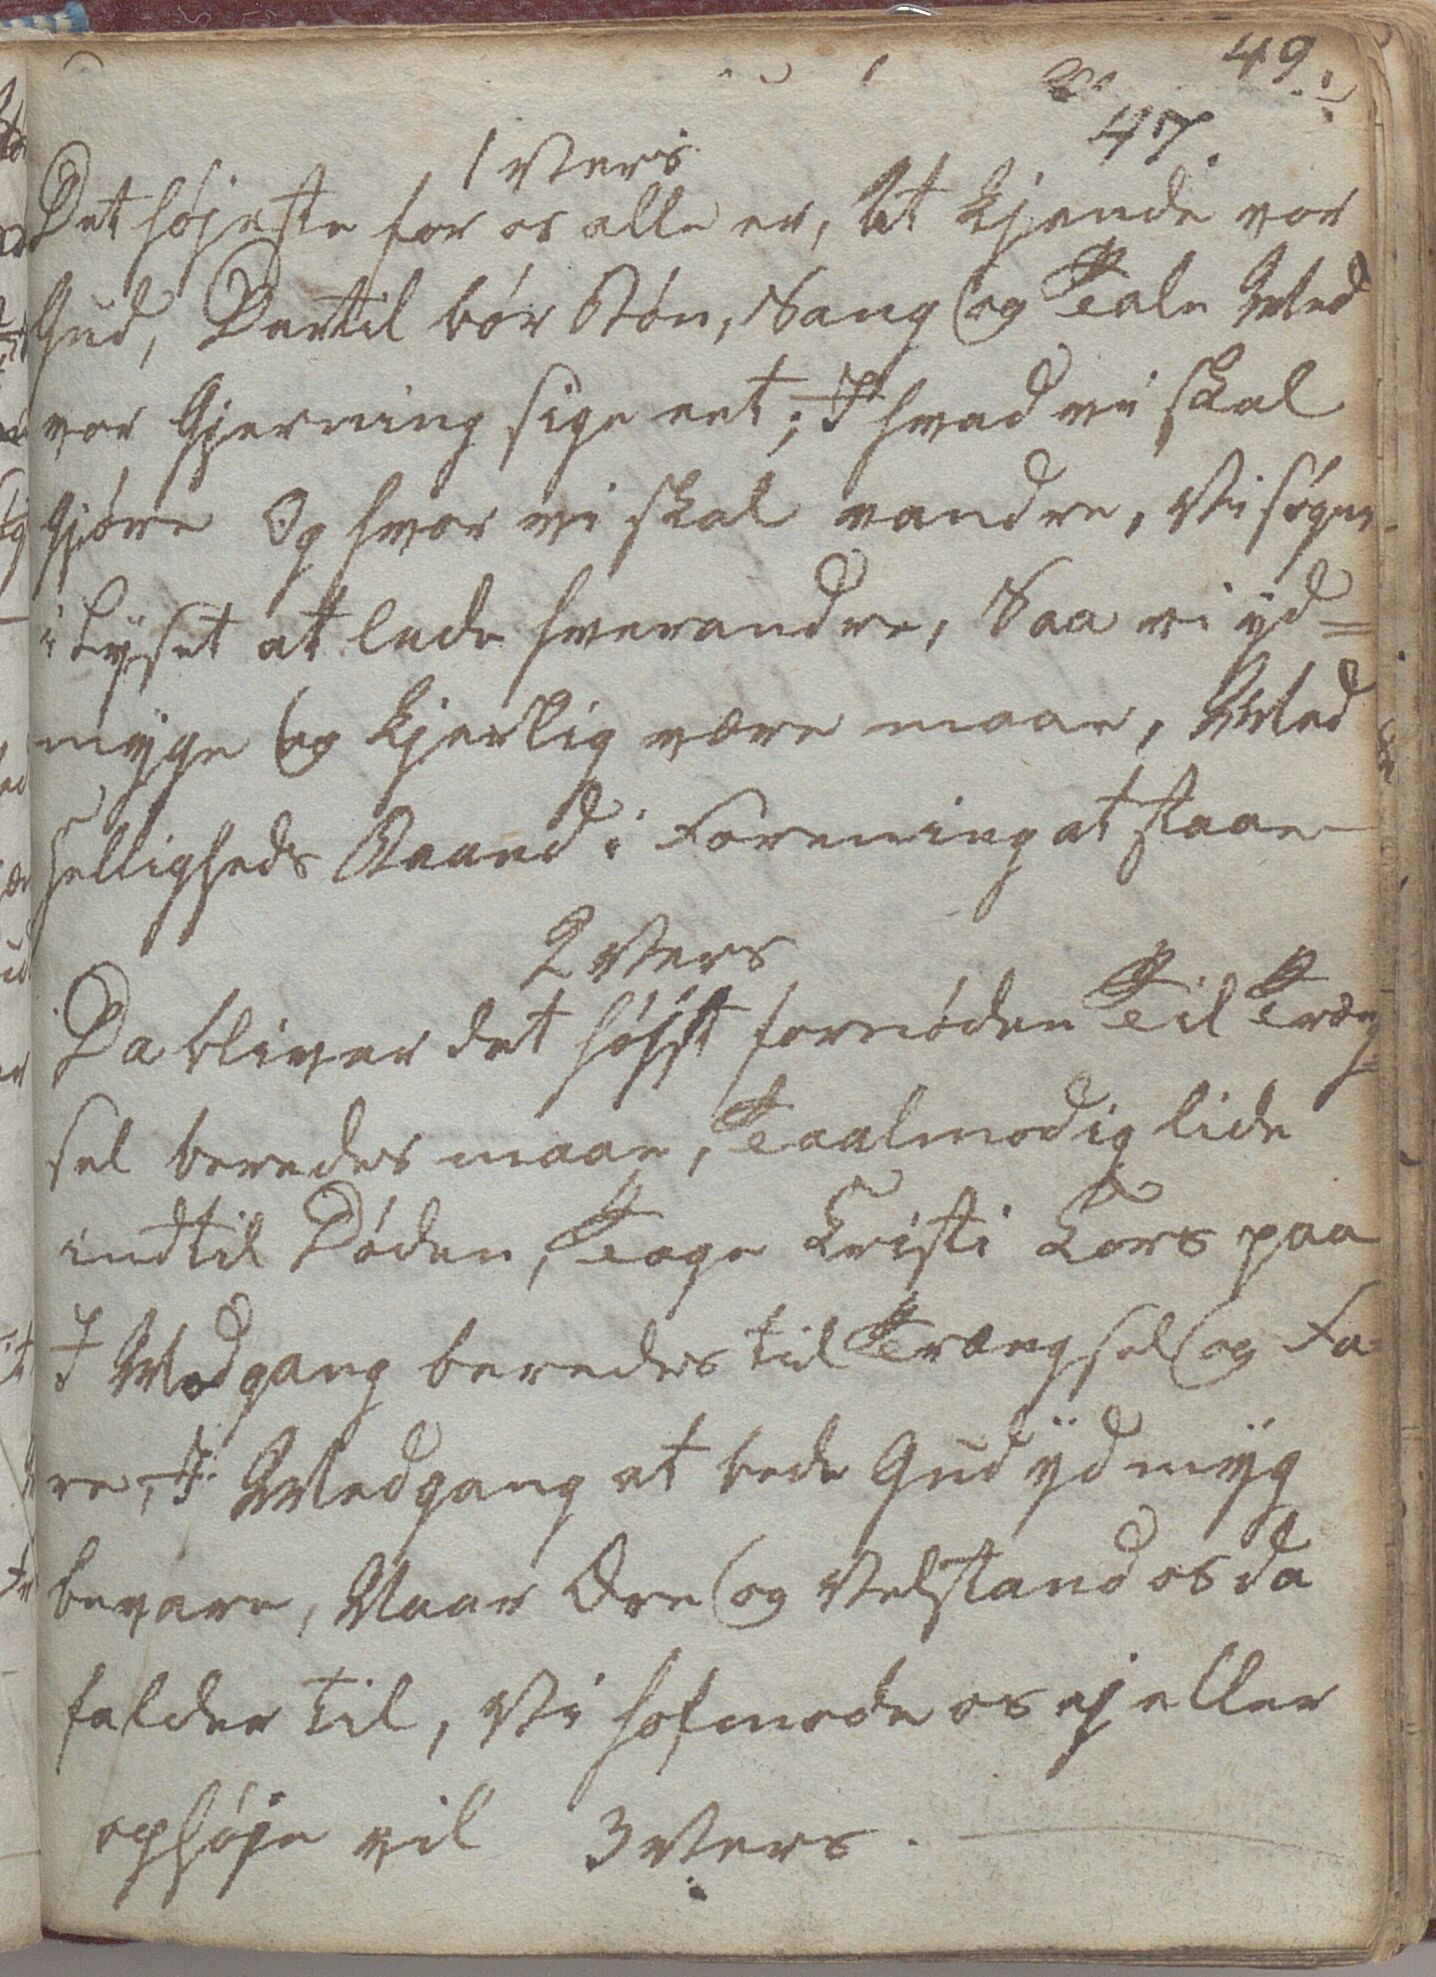 49.
47.
1 Vers
Det højeste for os alle er, At kjende vor
Gud, Dertil bør Bøn, Sang og Tale Med
vor Gjerning sige eet; I hvad vi skal
Gjøre Og hvor vi skal vandre, Vi søger
i Lyset at lede hverandre, Saa vi yd=
myge og kjerlig være maae, Med
Helligheds Baand i Forening at staae
2 Vers
Da bliver det højst fornøden Til Træng=
sel beredes maae, Taalmodig lide
indtil Døden, Tage Kristi Kors paa
I Medgang beredes til Trængsel og Fa=
re, I Medgang at bede Gud ydmyg
bevare, Naar Ære og Velstand os da
falder til, Vi hofmode os ej eller
ophøje vil 3 Vers.